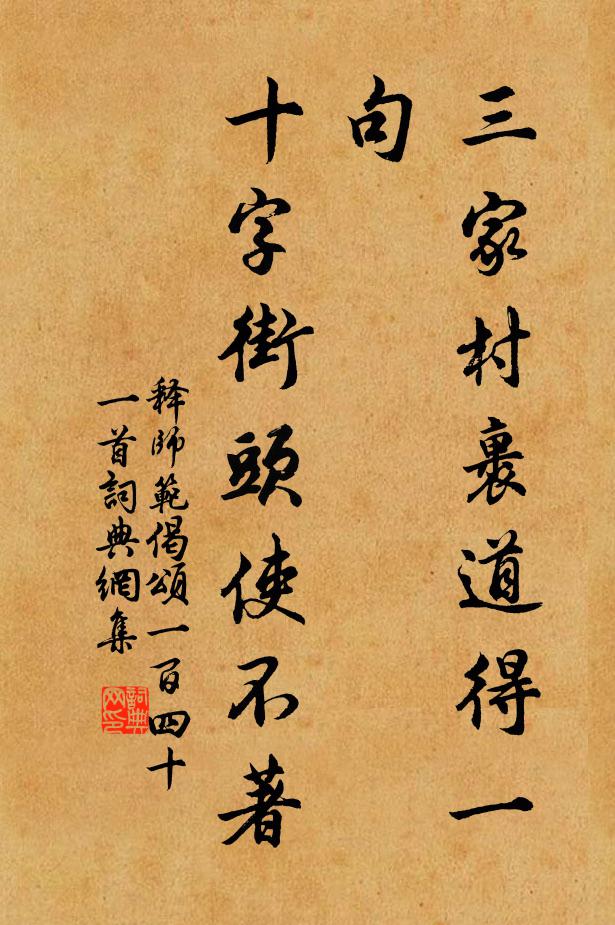 三家村裹道得一
句
十字街頭使不著
释師範偈頌一百四十
一首詞典網集
詞典
网印